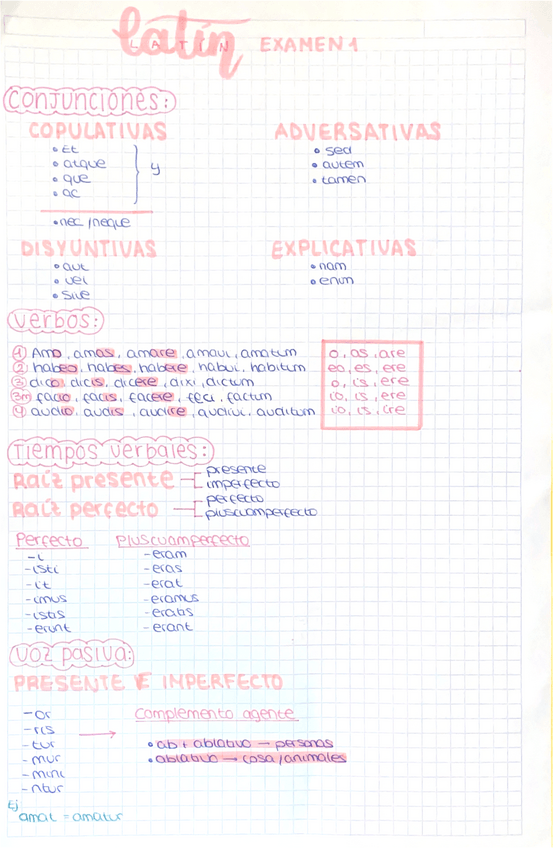 latín
LATÍN
EXAMEN 1
Conjunciones:
COPULATIVAS
• Et
• atque
• que
• ac
y
• nec / neque
ADVERSATIVAS
• sed
• autem
• tamen
DISYUNTIVAS
• aut
• vel
• sive
EXPLICATIVAS
• nam
• enim
Verbos:
① Amo, amas, amare, amavi, amatum
② habeo, habes, habere, habui, habitum
③ dico, dicis, dicere, dixi, dictum
3m facio, facis, facere, feci, factum
④ audio, audis, audire, audivi, auditum
o, as, are
eo, es, ere
o, is, ere
io, is, ere
io, is, ire
Tiempos verbales:
Raíz presente
presente
imperfecto
Raíz perfecto
perfecto
pluscuamperfecto
Perfecto
-i
-isti
-it
-imus
-istis
-erunt
Pluscuamperfecto
-eram
-eras
-erat
-eramus
-eratis
-erant
Voz pasiva:
PRESENTE E IMPERFECTO
-or
-ris
-tur
-mur
-mini
-ntur
→
Complemento agente
• ab + ablativo → personas
• ablativo → cosa/animales
Ej
amat = amatur